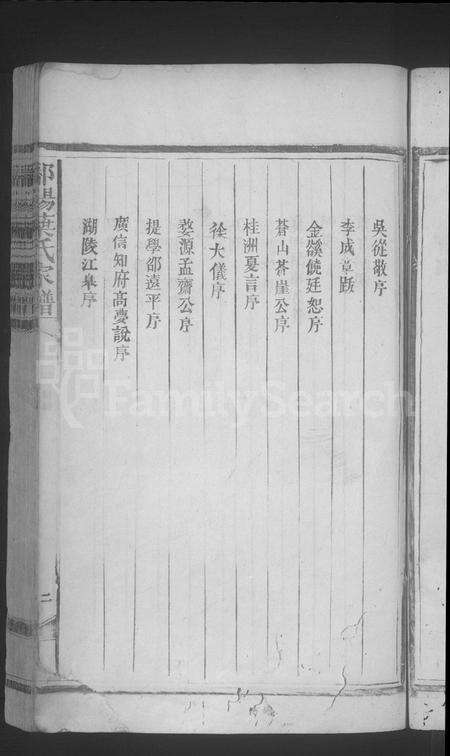 吳從敬序
李成章跋
金谿饒廷恕序
蒼山蒼崖公序
桂洲夏言序
徐大儀序
婺源孟齋公序
提學邵遠平序
廣信知府高夢說序
湖陵江皋序
氏家譜
二
FamilySearch